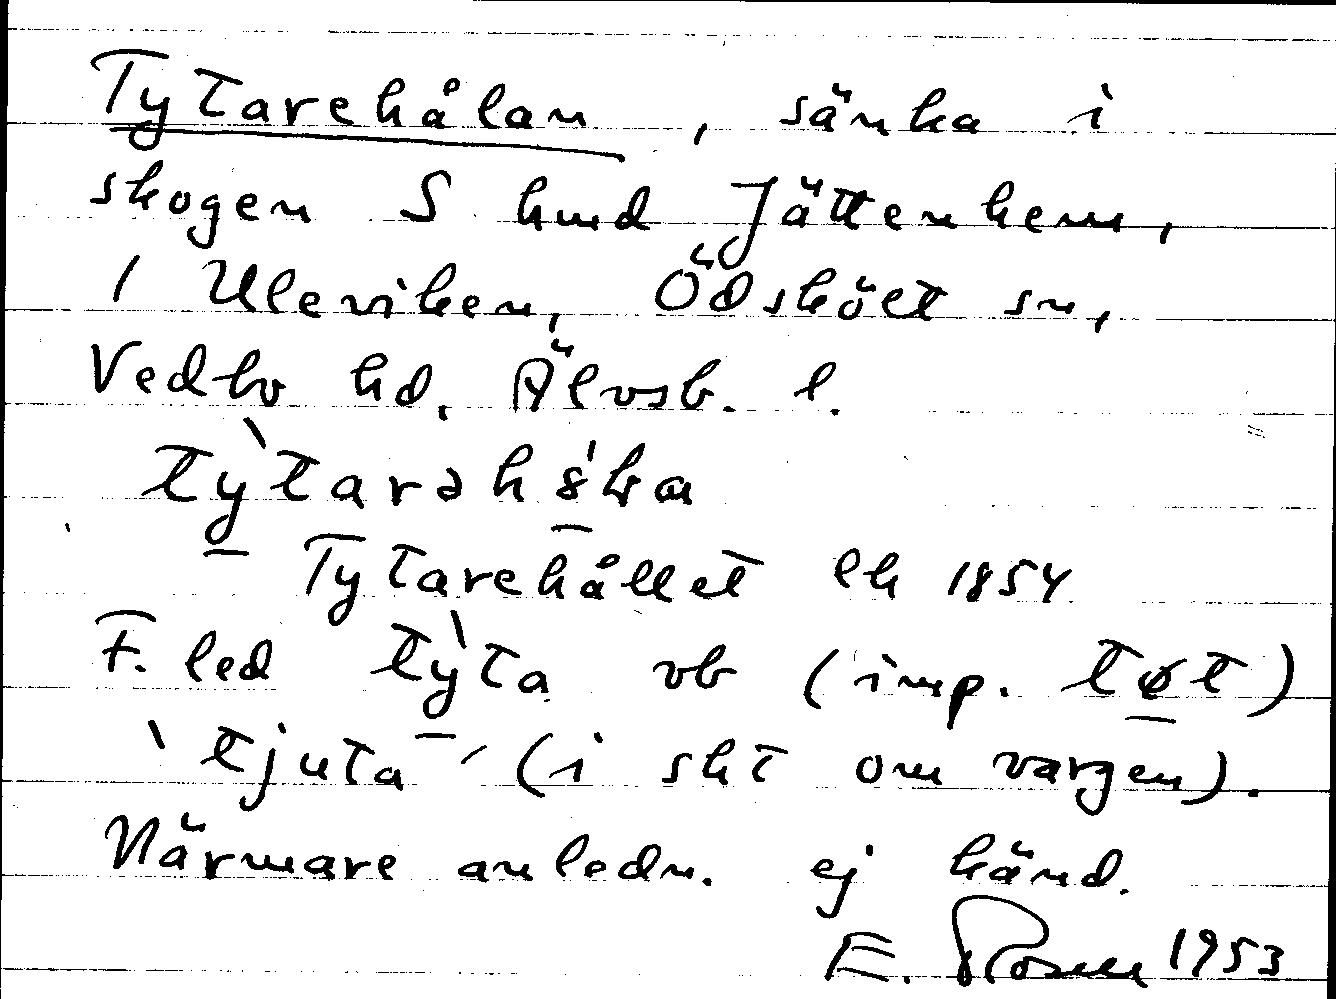 Tytarehålan, sänka i
skogen S hmd Jättenhem,
1 Uleviken, Ödskölt sn,
Vedbo hd, Älvsb. l.
tỳtarəh
Tytarehållet lk 1854
F. led tỳta vb (imp. tøt)
'tjuta' (i sht om vargen).
Närmare anledn. ej känd.
E. Rosell 1953